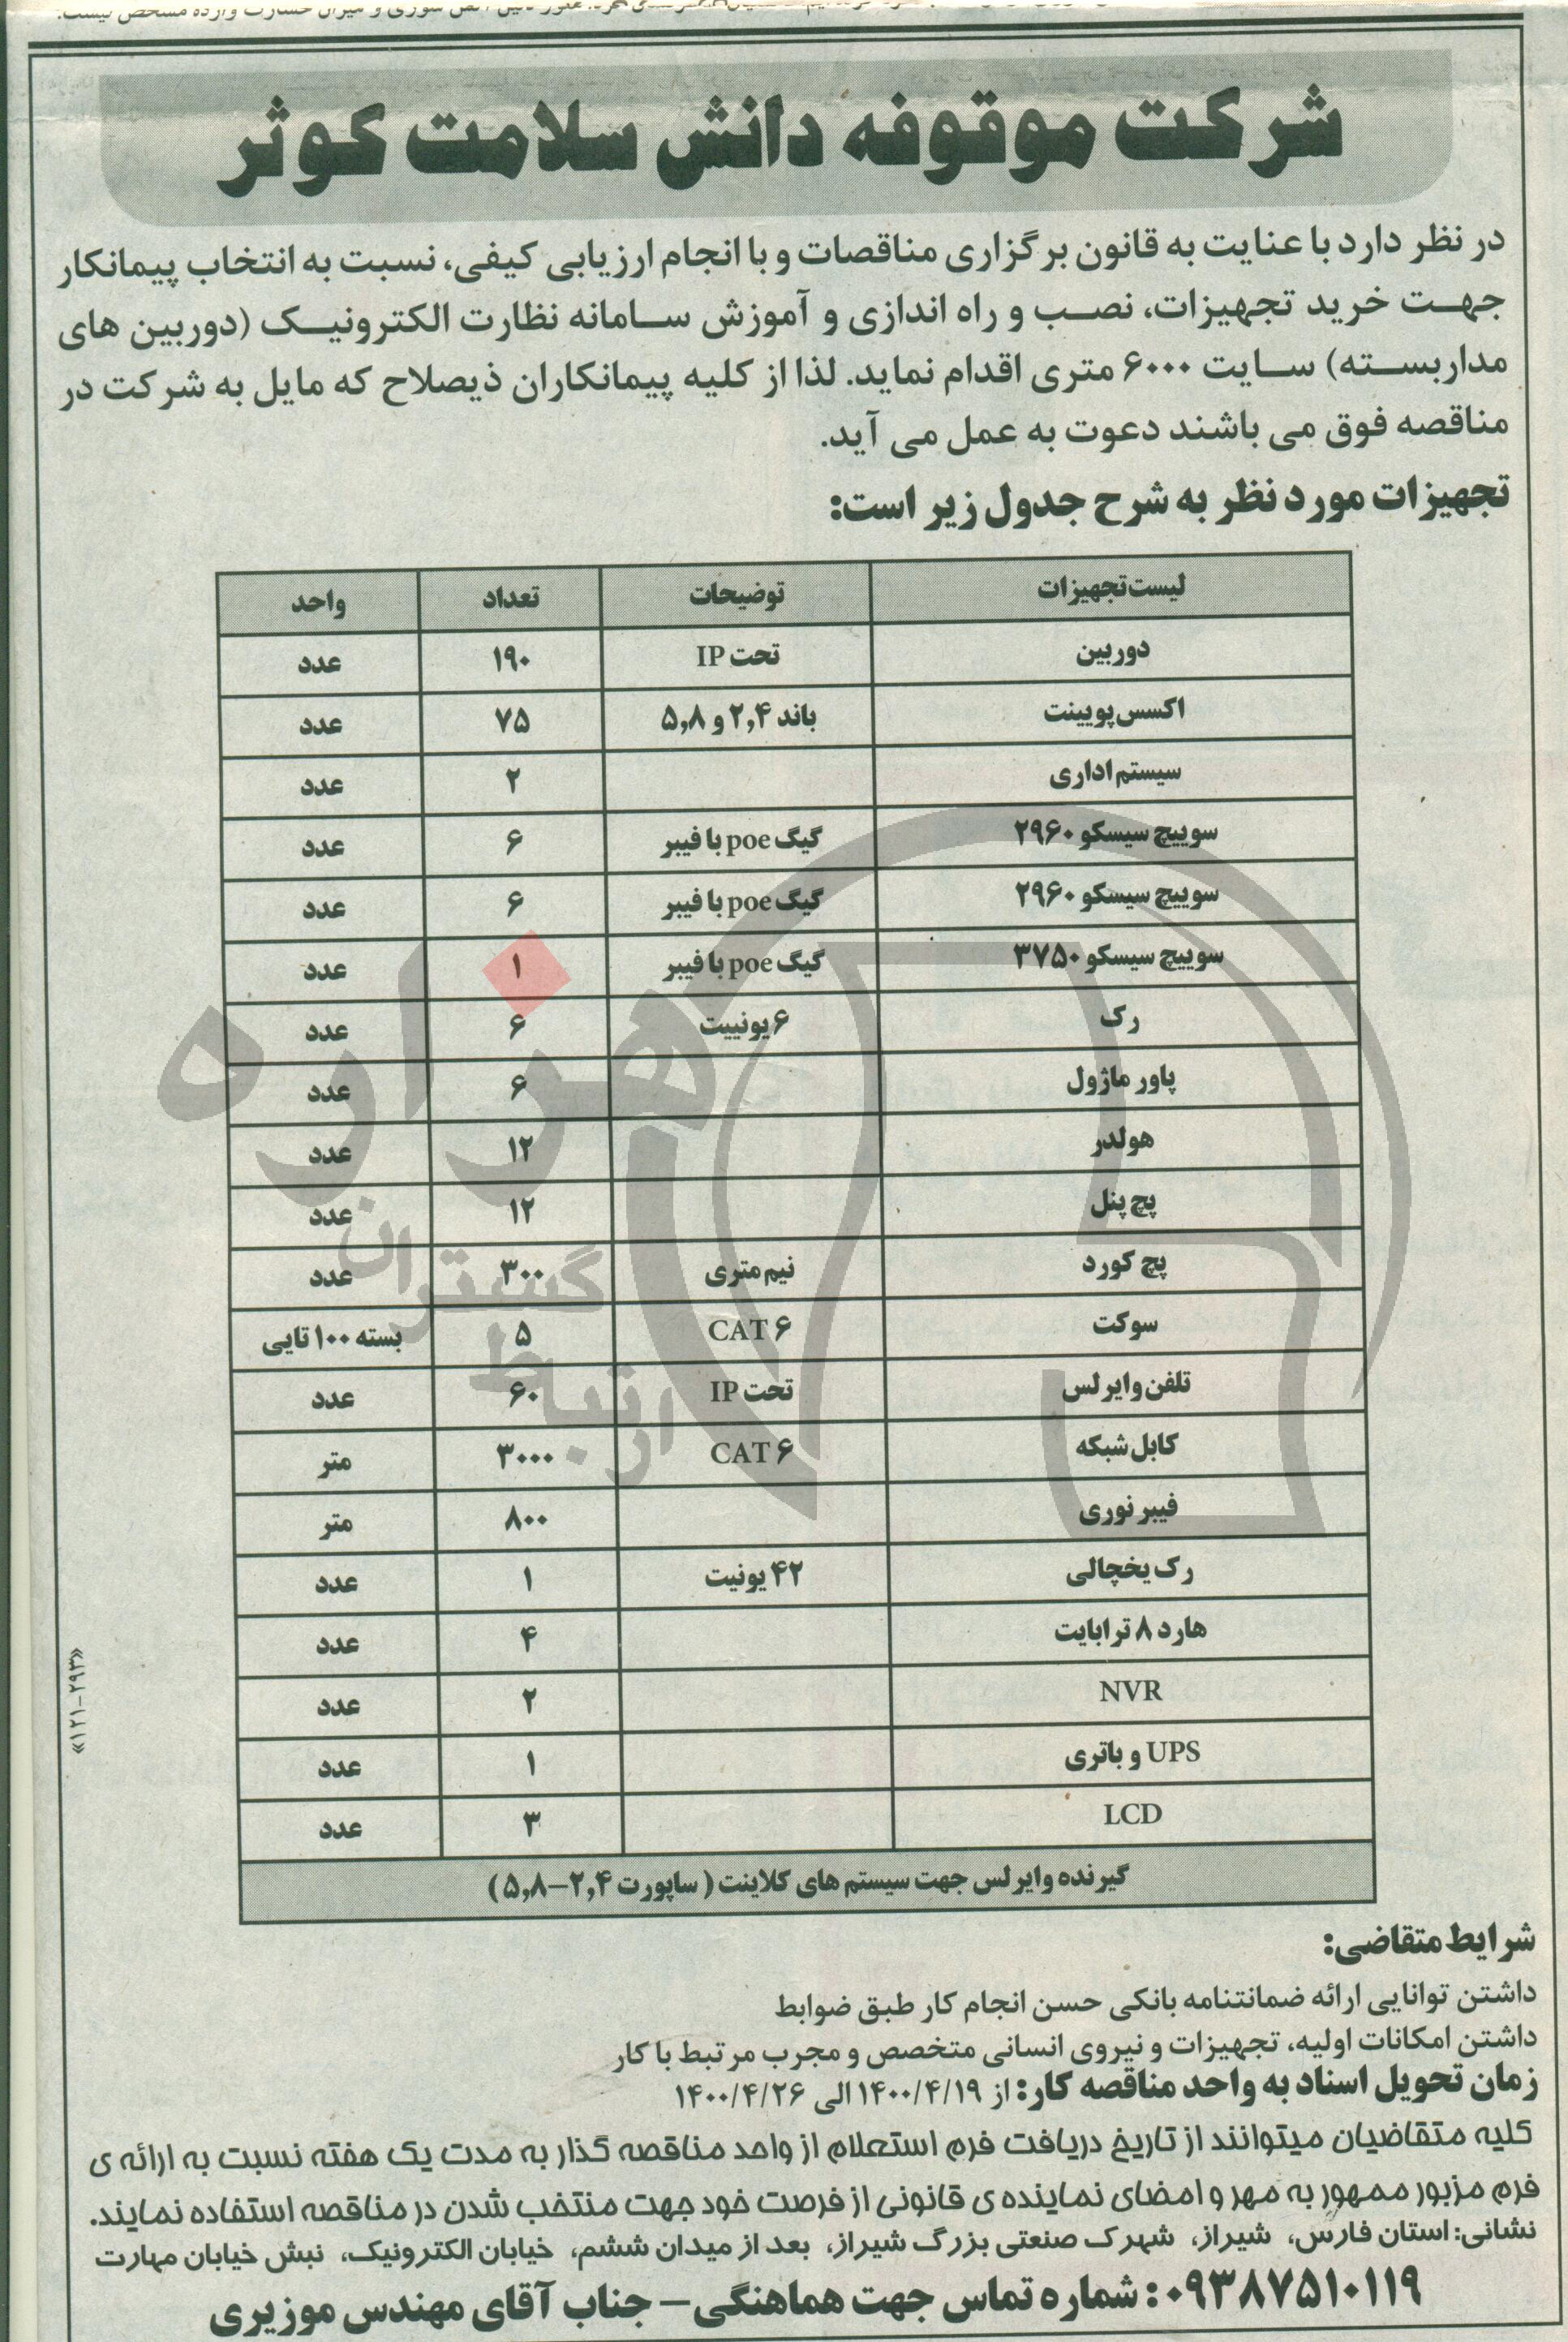 شرکت موقوفه دانش سلامت کوثر
در نظر دارد با عنایت به قانون برگزاری مناقصات و با انجام ارزیابی کیفی، نسبت به انتخاب پیمانکار
جهت خرید تجهیزات، نصب و راه اندازی و آموزش سامانه نظارت الکترونیک (دوربین های
مداربسته) سایت ۶۰۰۰ متری اقدام نماید. لذا از کلیه پیمانکاران ذیصلاح که مایل به شرکت در
مناقصه فوق می باشند دعوت به عمل می آید.
تجهیزات مورد نظر به شرح جدول زیر است:
لیست تجهیزات توضیحات تعداد واحد
دوربین تحت IP ۱۹۰ عدد
اکسس پویینت باند ۲,۴ و ۵,۸ ۷۵ عدد
سیستم اداری ۲ عدد
سوییچ سیسکو ۲۹۶۰ گیگ poe با فیبر ۶ عدد
سوییچ سیسکو ۲۹۶۰ گیگ poe با فیبر ۶ عدد
سوییچ سیسکو ۳۷۵۰ گیگ poe با فیبر ۱ عدد
رک ۶ یونییت ۶ عدد
پاور ماژول ۶ عدد
هولدر ۱۲ عدد
پچ پنل ۱۲ عدد
پچ کورد نیم متری ۳۰۰ عدد
سوکت CAT ۶ ۵ بسته ۱۰۰ تایی
تلفن وایرلس تحت IP ۶۰ عدد
کابل شبکه CAT ۶ ۳۰۰۰ متر
فیبر نوری ۸۰۰ متر
رک یخچالی ۴۲ یونیت ۱ عدد
هارد ۸ ترابایت ۴ عدد
NVR ۲ عدد
UPS و باتری ۱ عدد
LCD ۳ عدد
گیرنده وایرلس جهت سیستم های کلاینت (ساپورت ۲,۴–۵,۸)
شرایط متقاضی:
داشتن توانایی ارائه ضمانتنامه بانکی حسن انجام کار طبق ضوابط
داشتن امکانات اولیه، تجهیزات و نیروی انسانی متخصص و مجرب مرتبط با کار
زمان تحویل اسناد به واحد مناقصه کار: از ۱۴۰۰/۴/۱۹ الی ۱۴۰۰/۴/۲۶
کلیه متقاضیان میتوانند از تاریخ دریافت فرم استعلام از واحد مناقصه گذار به مدت یک هفته نسبت به ارائه ی
فرم مزبور ممهور به مهر و امضای نماینده ی قانونی از فرصت خود جهت منتخب شدن در مناقصه استفاده نمایند.
نشانی: استان فارس، شیراز، شهرک صنعتی بزرگ شیراز، بعد از میدان ششم، خیابان الکترونیک، نبش خیابان مهارت
۰۹۳۸۷۵۱۰۱۱۹: شماره تماس جهت هماهنگی – جناب آقای مهندس موزیری
«۱۲۱–۲۹۳»
هزاره
گستران
ارتباط